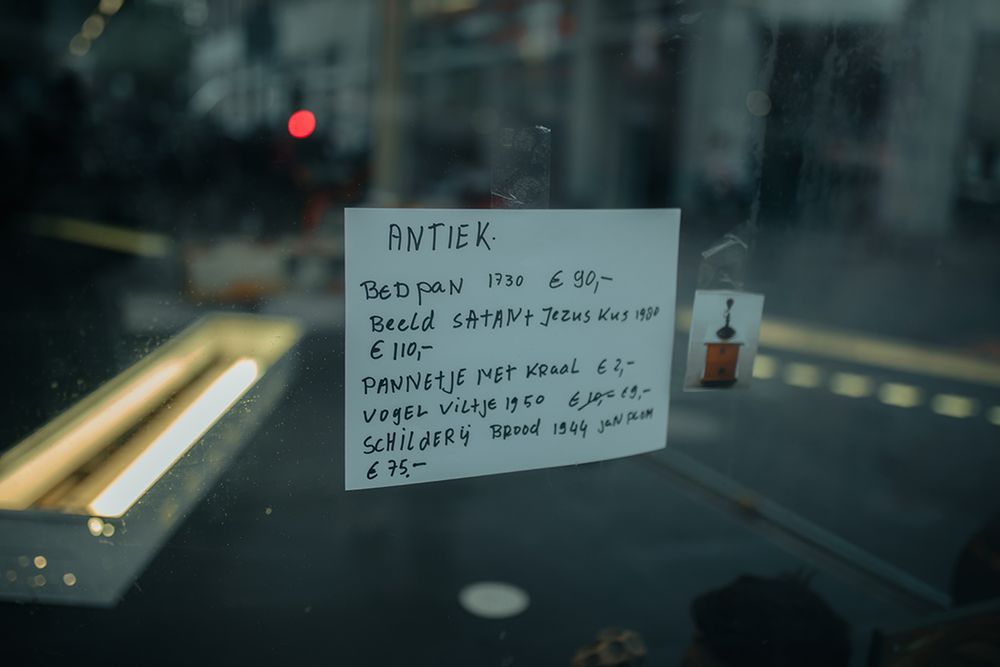 ANTIEK.
BEDpAN 1730 € 90,-
Beeld SATAN + Jezus Kus 1980
€ 110,-
PANNETJE MET KRAAL € 2,-
VOGEL Viltje 1950 € 10,- € 9,-
SCHILDERij BROOD 1944 JAN PLOM
€ 75.-